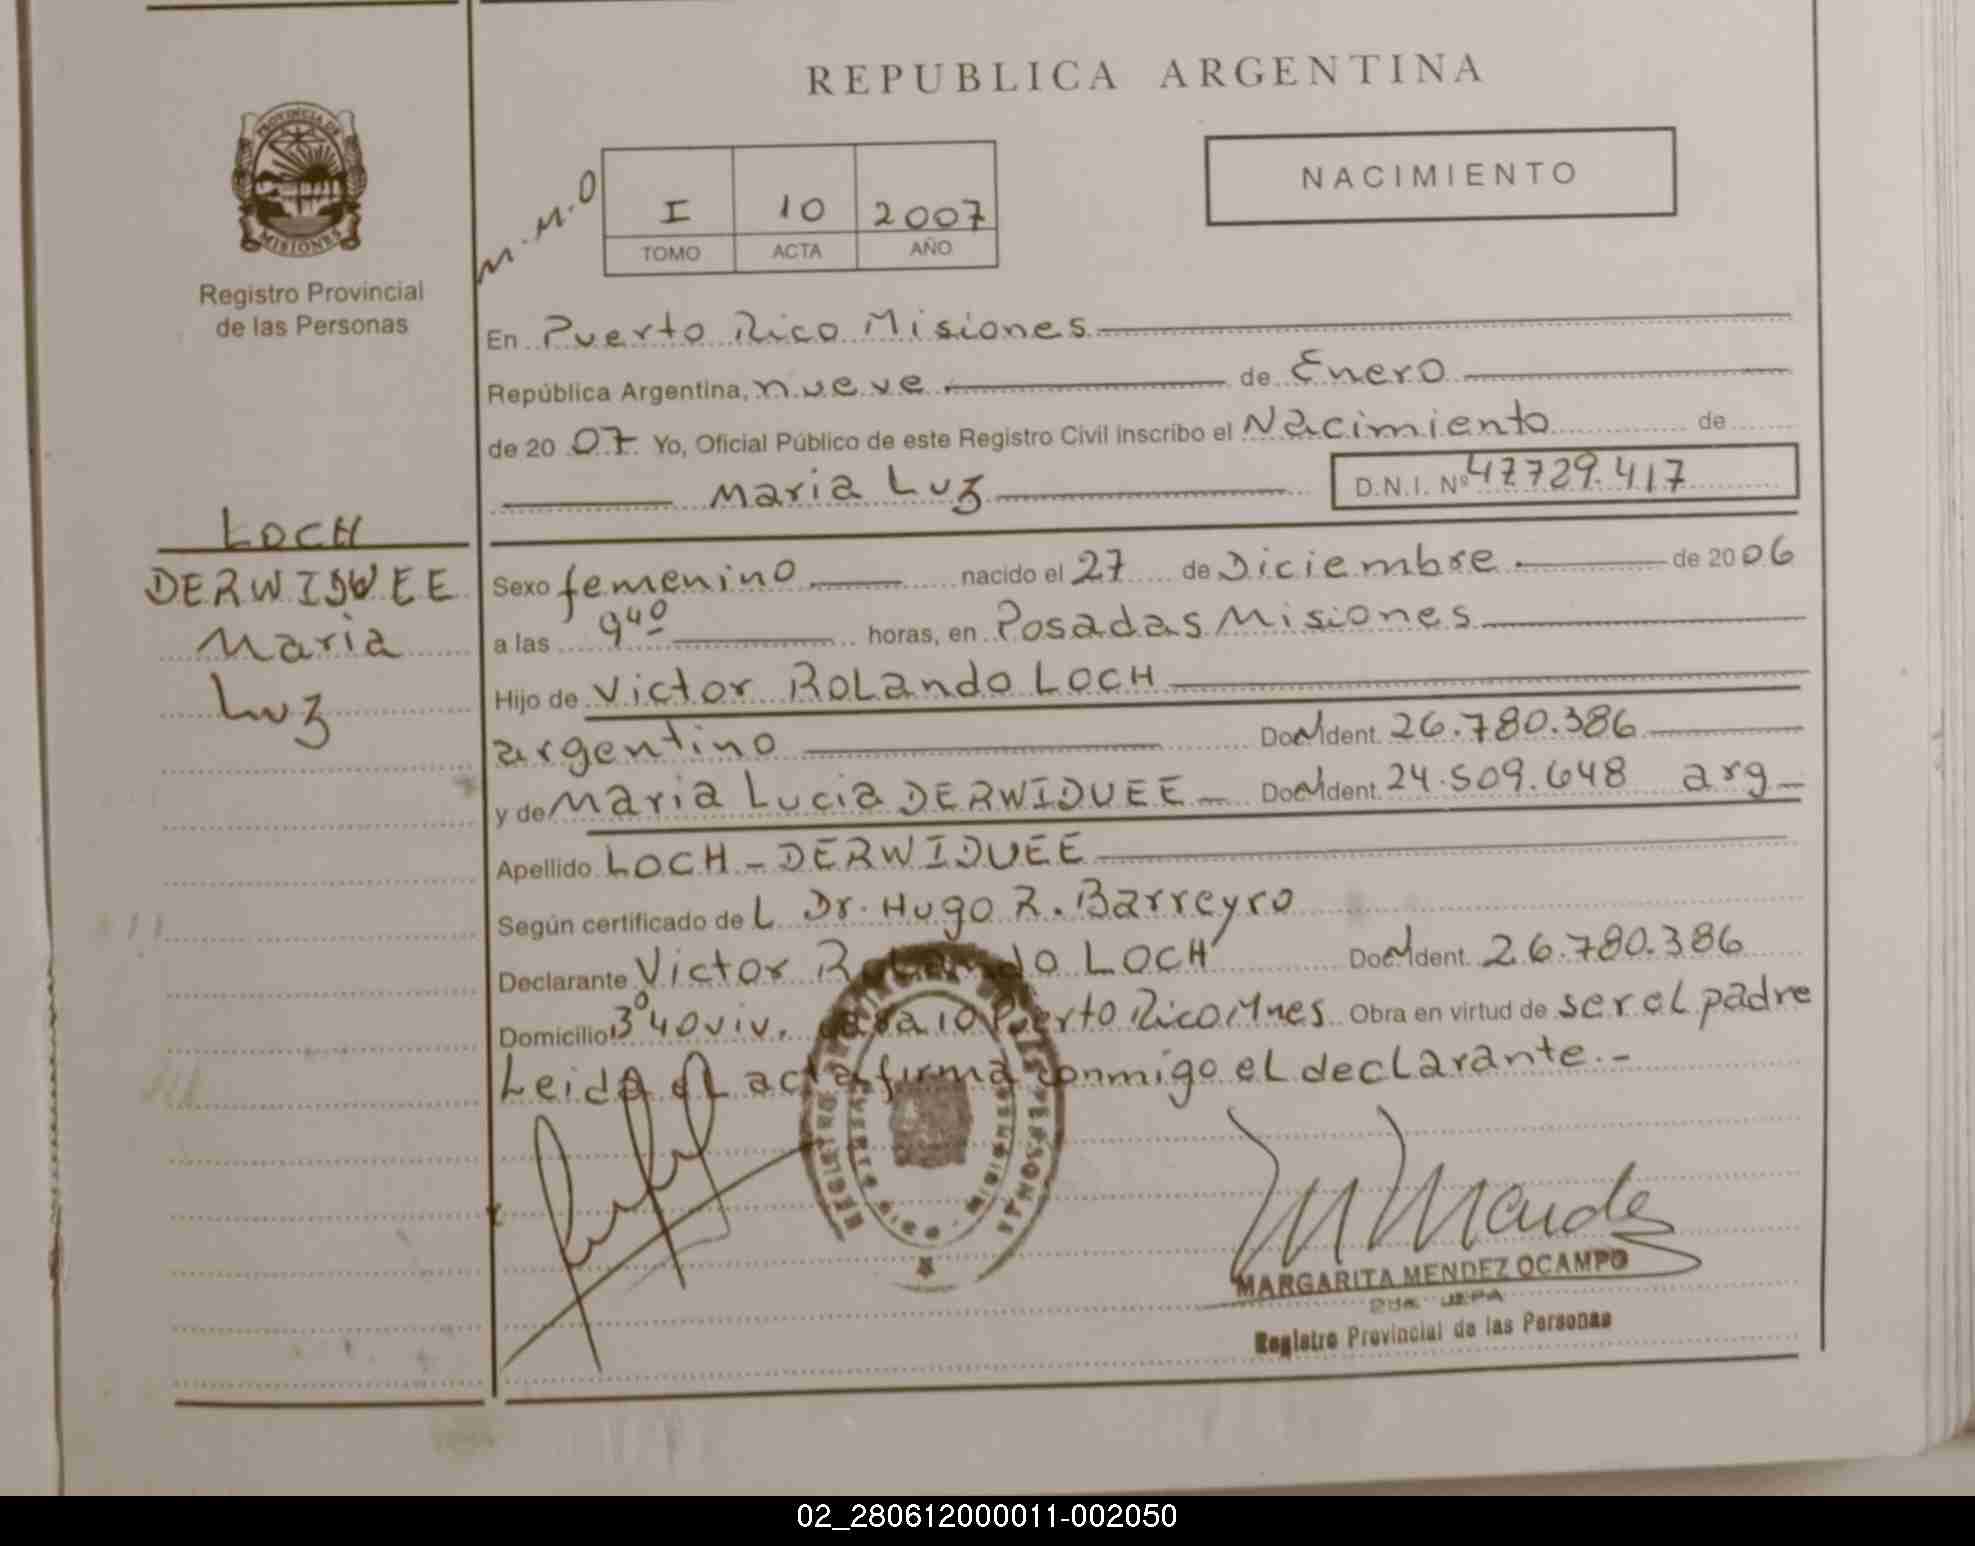 REPUBLICA ARGENTINA
PROVINCIA DE
MISIONES
Registro Provincial
de las Personas
M.M.O
I 10 2007
TOMO ACTA AÑO
NACIMIENTO
En Puerto Rico Misiones
República Argentina, nueve de Enero
de 20 07 Yo, Oficial Público de este Registro Civil inscribo el Nacimiento de
Maria Luz D.N.I. Nº 47729.417
LOCH
DERWIDUEE
Maria
Luz
Sexo femenino nacido el 27 de Diciembre de 20 06
a las 9 40 horas, en Posadas Misiones
Hijo de Victor Rolando LOCH
argentino Doc Ident. 26.780.386
y de Maria Lucia DERWIDUEE Doc Ident. 24.509.648 arg
Apellido LOCH - DERWIDUEE
Según certificado de L Dr. Hugo R. Barreyro
Declarante Victor Rolando LOCH Doc Ident. 26.780.386
Domicilio 3º 40 viv. casa 10 Puerto Rico Mnes Obra en virtud de ser el padre
Leida el acta firma conmigo el declarante.-
M Mendez
MARGARITA MENDEZ OCAMPO
Registro Provincial de las Personas
02_280612000011-002050